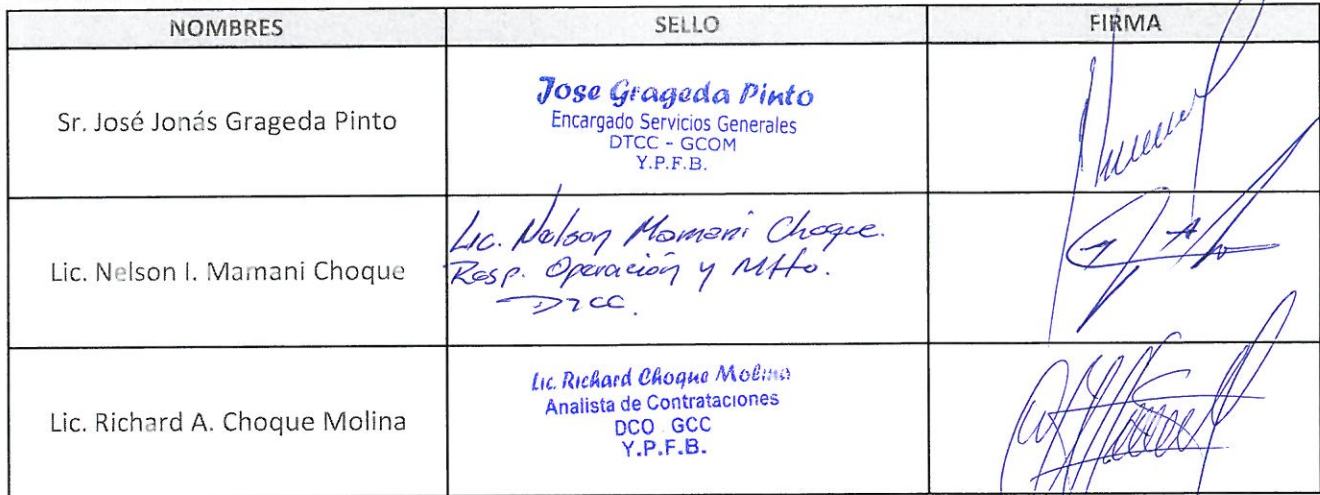 NOMBRES SELLO FIRMA
Sr. José Jonás Grageda Pinto
Jose Grageda Pinto
Encargado Servicios Generales
DTCC - GCOM
Y.P.F.B.
Lic. Nelson I. Mamani Choque
Lic. Nelson Mamani Choque.
Resp. Operación y Mtto.
DTCC.
Lic. Richard A. Choque Molina
Lic. Richard Choque Molina
Analista de Contrataciones
DCO GCC
Y.P.F.B.